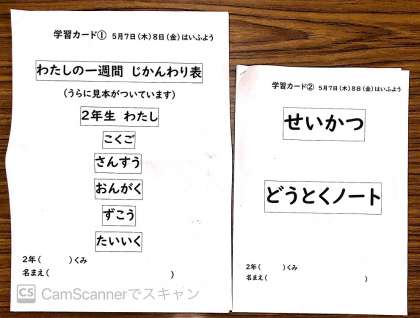 学習カード① 5月7日(木)8日(金)はいふよう
わたしの一週間 じかんわり表
(うらに見本がついています)
2年生 わたし
こくご
さんすう
おんがく
ずこう
たいいく
2年( )くみ
名まえ( )
学習カード② 5月7日(木)8日(金)はいふよう
せいかつ
どうとくノート
2年( )くみ
名まえ( )
CS CamScannerでスキャン